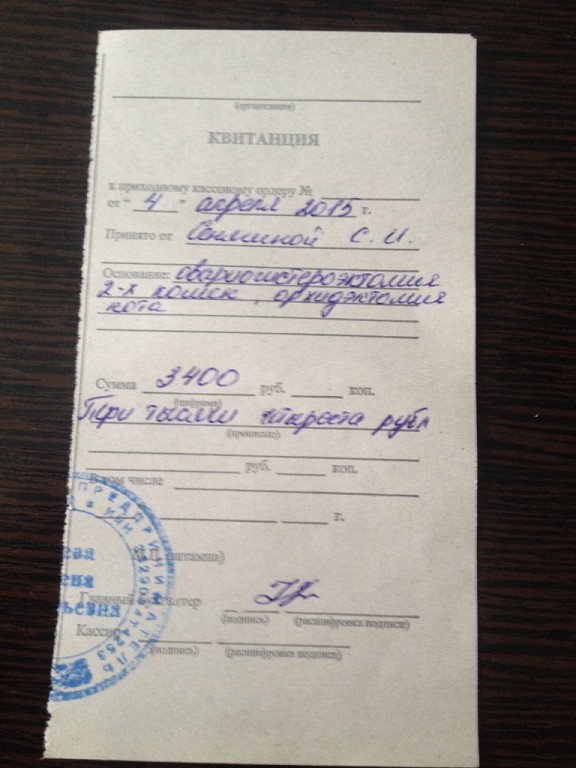 (организация)
КВИТАНЦИЯ
к приходному кассовому ордеру №
от " 4 " апреля 2015 г.
Принято от С. И.
Основание: овариогистероэктомия
2-х кошек, орхидэктомия
кота
Сумма 3400 руб. коп.
(цифрами)
Три тысячи четыреста рубл
(прописью)
руб. коп.
В том числе
г.
М.П. (штампа)
Главный бухгалтер
(подпись) (расшифровка подписи)
Кассир
(подпись) (расшифровка подписи)
ПРЕДПРИНИМАТЕЛЬ
ева
ена
ьевна